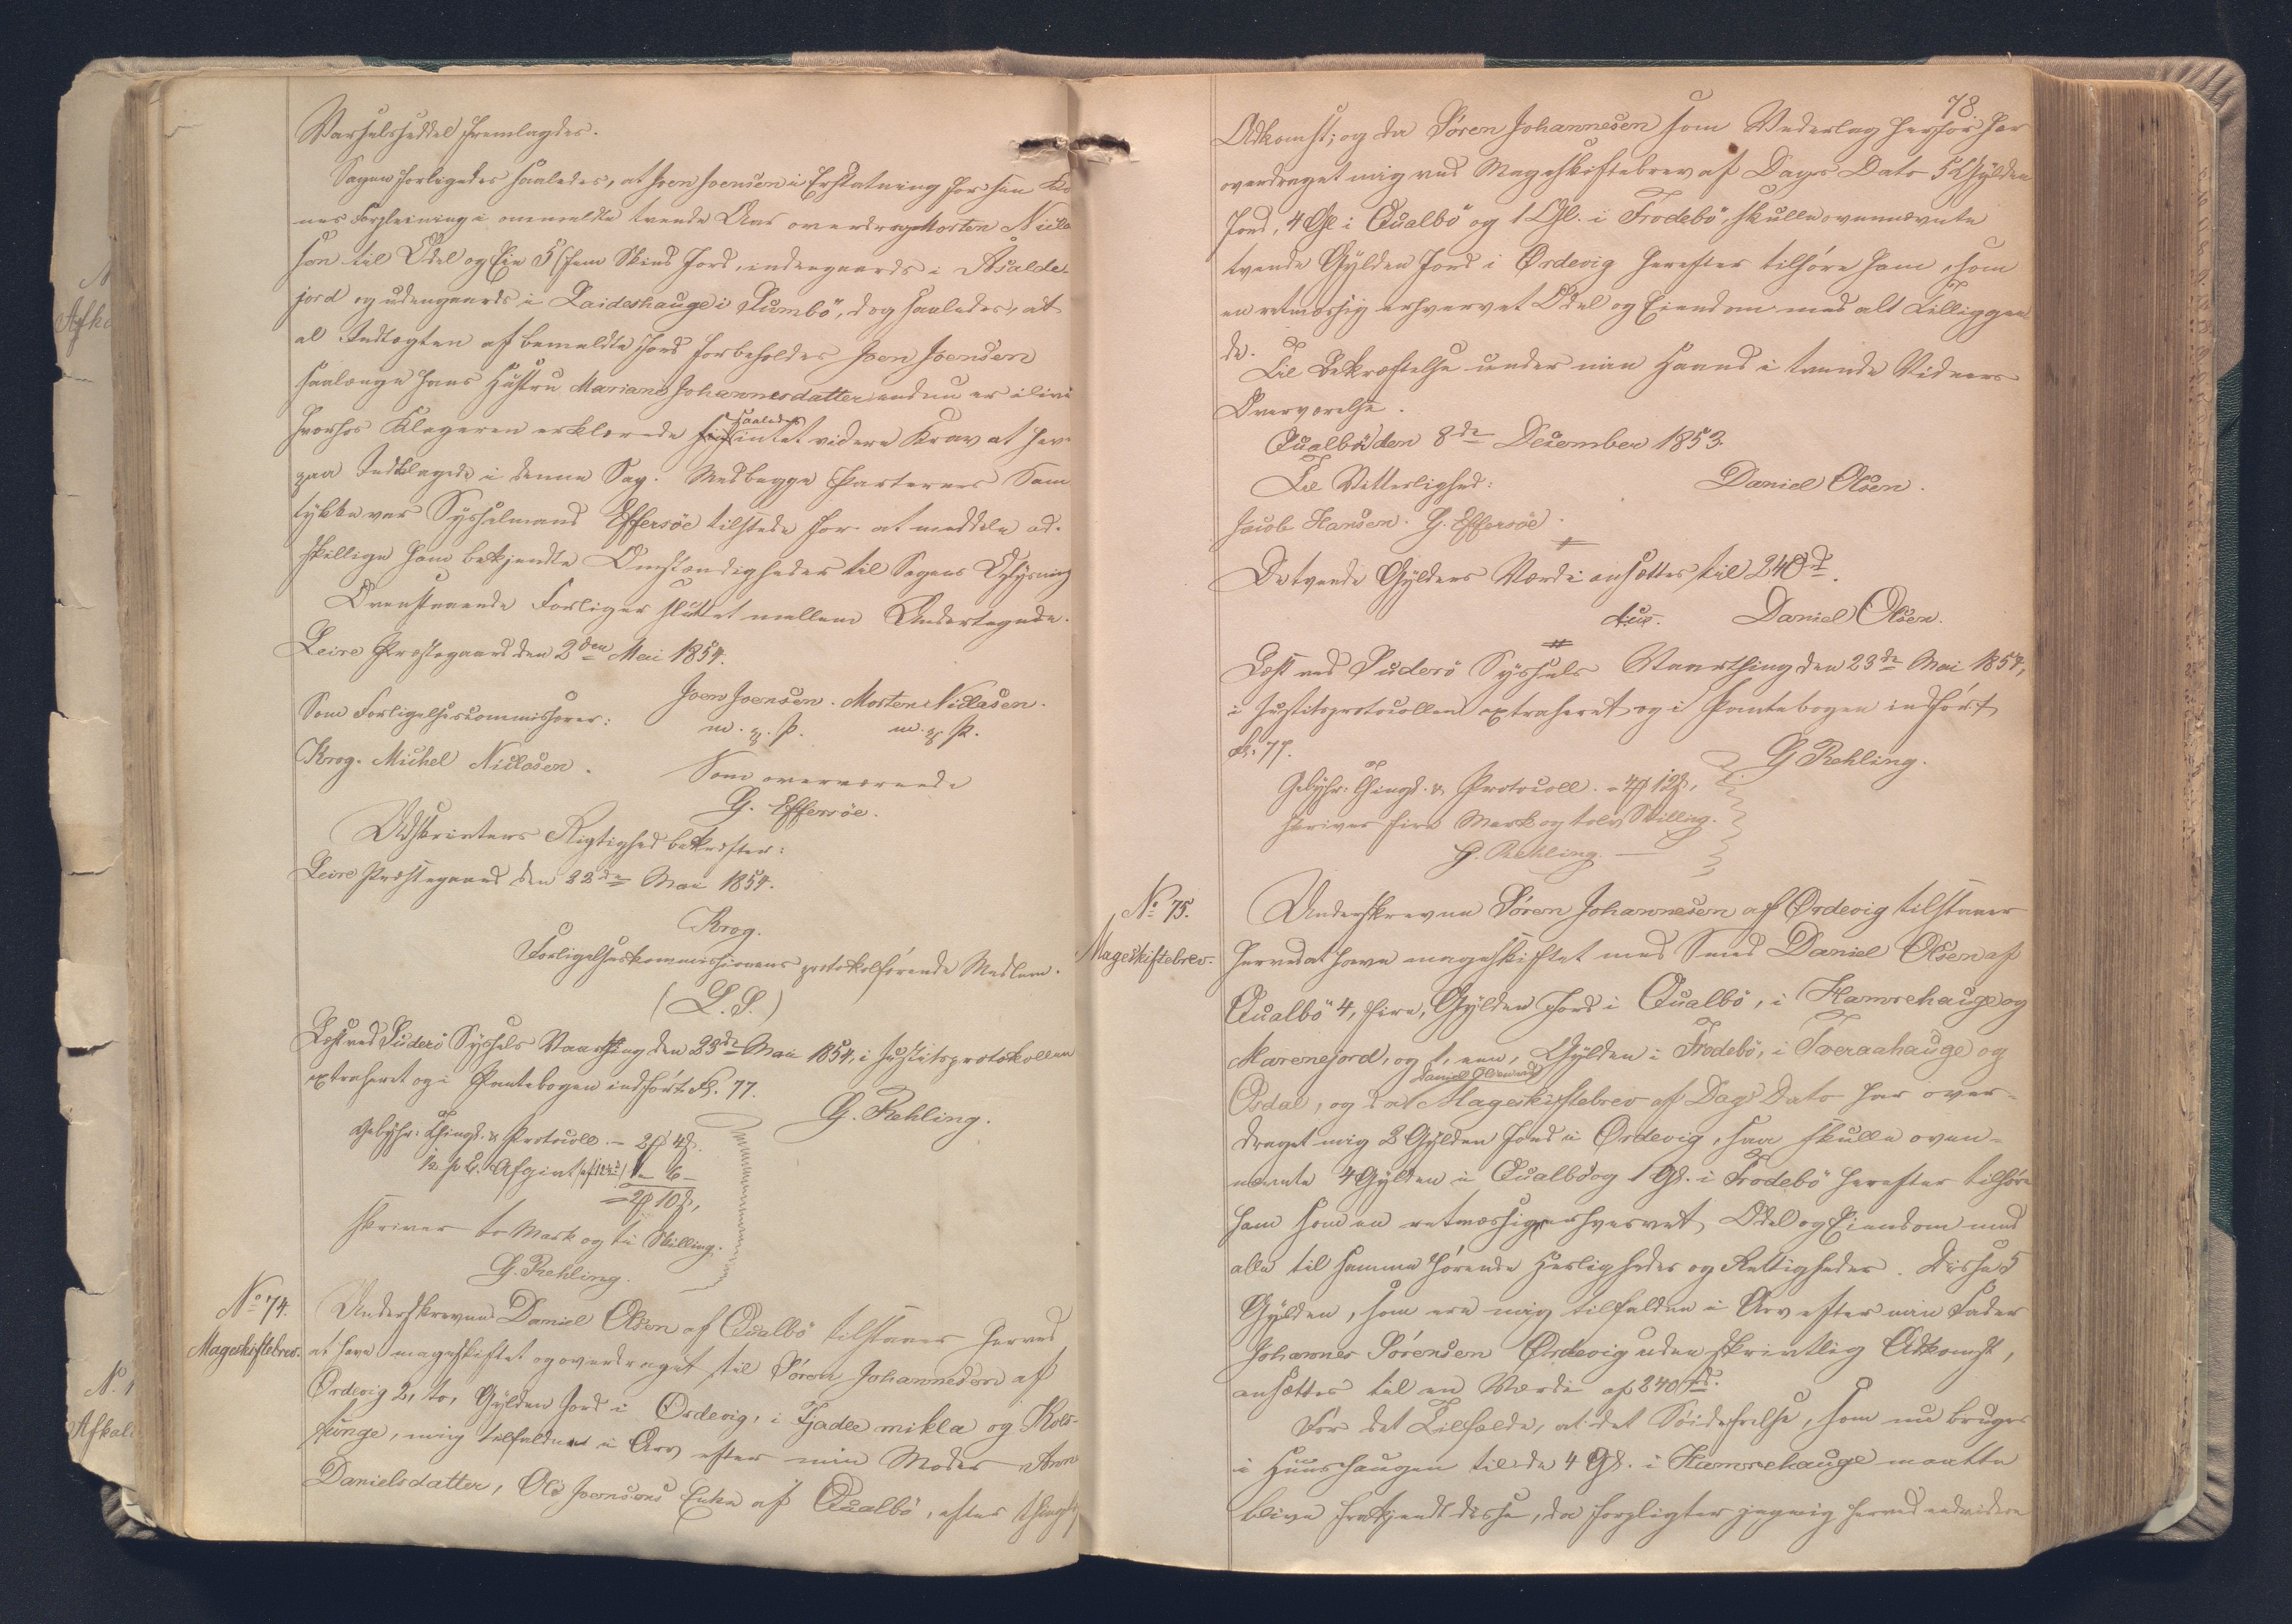 Varselsseddel fremlagdes.
Sagen forligedes saaledes, at Joen Joensen i Erstatning for sin Ko-
nes Forpleining i ommeldte tvende Aar overdrog Morten Nicla
sen til Odel og Eie 5 (fem Skind Jord, indengaards i Åsalde-
jord og udengaards i Laideshauge i Sumbö, dog saaledes, at
al Indtægten af bemeldte Jord forbeholdes Joen Joensen
saalænge hans Hustru Mariane Johannesdatter endnu er ilive
hvorhos Klageren erklærede saaledes intet videre Krav at have
paa Indklagede i denne Sag. Med begge Parternes Sam
tykke var Sysselmand Effersöe tilstede for at meddele ad-
skillige ham bekjendte Omstændigheder til Sagens Oplysning
Ovenstaaende Forlig er sluttet mellem Undertegnede.
Qvivig Præstegaard den 2den Mai 1854.
Joen Joensen. Morten Niclasen.
Som Forligelsescommissairer: m. f. P. m. f. P.
Krog. Michel Niclasen. Som overværende
G. Effersöe.
Udskriftens Rigtighed bekræfter:
Præstegaard den 22de Mai 1854.
Krog.
Forligelseskommissionens protokolførende Medlem.
(L. S.)
Læst ved Suderö Syssels Vaarthing den 23de Mai 1854, i Justitsprotokollen
extraheret og i Pantebogen indført Fol. 77.
G. Rehling.
Gebyhr: Thingl. & Protocoll. – 2 ꝥ 4 ß.
½ p. C. Afgivt 1 – 6 –
= 2 ꝥ 10 ß,
skriver to Mark og ti Skilling.
G. Rehling.
No 74.
Mageskiftebrev.
Underskrevne Daniel Olsen af Qualbö tilstaaer herved
at have mageskiftet og overdraget til Sören Johannesen af
Ordevig 2, to, Gylden Jord i Ordevig, i Fjadle mikla og Kols-
funge, mig tilfalden i Arv efter min Moder Anne
Danielsdatter, Ole Joensens Enke af Qualbö, efter
78
Adkomst; og da Sören Johannesen som Vederlag herfor har
overdraget mig ved Mageskiftebrev af Dags Dato 5 Gylden
Jord, 4 Gl. i Qualbö og 1 Gl. i Frodebö, skulle ovennævnte
tvende Gylden Jord i Ordevig herefter tilhöre ham som
en retmæssig erhvervet Odel og Eiendom med alt Tilliggen
de.
Til Bekræftelse under min Haand i tvende Vidners
Overværelse.
Qualbö den 8de December 1853.
Til Vitterlighed: Daniel Olsen.
Jacob Hansen. G. Effersöe.
De tvende Gyldens Værdi ansættes til 240 rd.
Daniel Olsen.
Læst ved Suderö Syssels Vaarthing den 23de Mai 1854,
i Justitsprotocollen extraheret og i Pantebogen indført
Fol. 77.
G Rehling.
Gebyhr: Thingl. & Protocoll. = 4 ꝥ 12 ß,
skriver fire Mark og tolv Skilling.
G. Rehling.
No 75.
Mageskiftebrev.
Underskrevne Sören Johannesen af Ordevig tilstaaer
herved at have mageskiftet med Smed Daniel Olsen af
Qualbö 4, fire, Gylden Jord i Qualbö, i Hamrehauge og
Marenejord, og 1, een, Gylden i Frodebö, i Tveraahauge og
Osdal, og da Daniel Olsen ved Mageskiftebrev af Dags Dato har over-
draget mig 2 Gylden Jord i Ordevig, saa skulle oven-
nævnte 4 Gylden i Qualbö og 1 Gl. i Frodebö herefter tilhöre
ham som en retmæssig erhvervet Odel og Eiendom med
alle til samme hörende Herligheder og Rettigheder. Disse 5
Gylden, som ere mig tilfaldne i Arv efter min Fader
Johannes Sörensen Ordevig uden skrivtlig Adkomst,
ansættes til en Værdi af 240 rd.
For det Tilfælde, at det Söidefælse, som nu bruges
i Huushaugen til de 4 Gl. i Hamrehauge maatte
blive frakjendt disse, da forpligter jeg mig herved endvidere